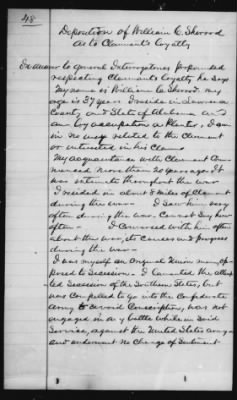 48
Deposition of William C. Sherrod
As to Claimant's loyalty
In answer to general Interrogatories propounded
respecting Claimant's loyalty he says
My name is William C. Sherrod. my
age is 37 years I reside in Lawrence
County and State of Alabama and
am by occupation a Planter, I am
in no way related to the Claimant
or interested in his Claim
My acquaintance with Claimant Com-
menced more than 20 years ago. It
was intimate throughout the war
I resided in about 8 miles of Claimant
during the war - I saw him very
often during the war. Cannot say how
often - I Conversed with him often
about the war, its causes and progress
during the war -
I was myself an original Union man, op-
posed to Secession - I the
Secession of the Southern States, but
was Compelled to go into the Confederate
Army to avoid Conscription, was not
engaged in any battle while in said
Service, against the United States Army -
and underwent no Change of Sentiment